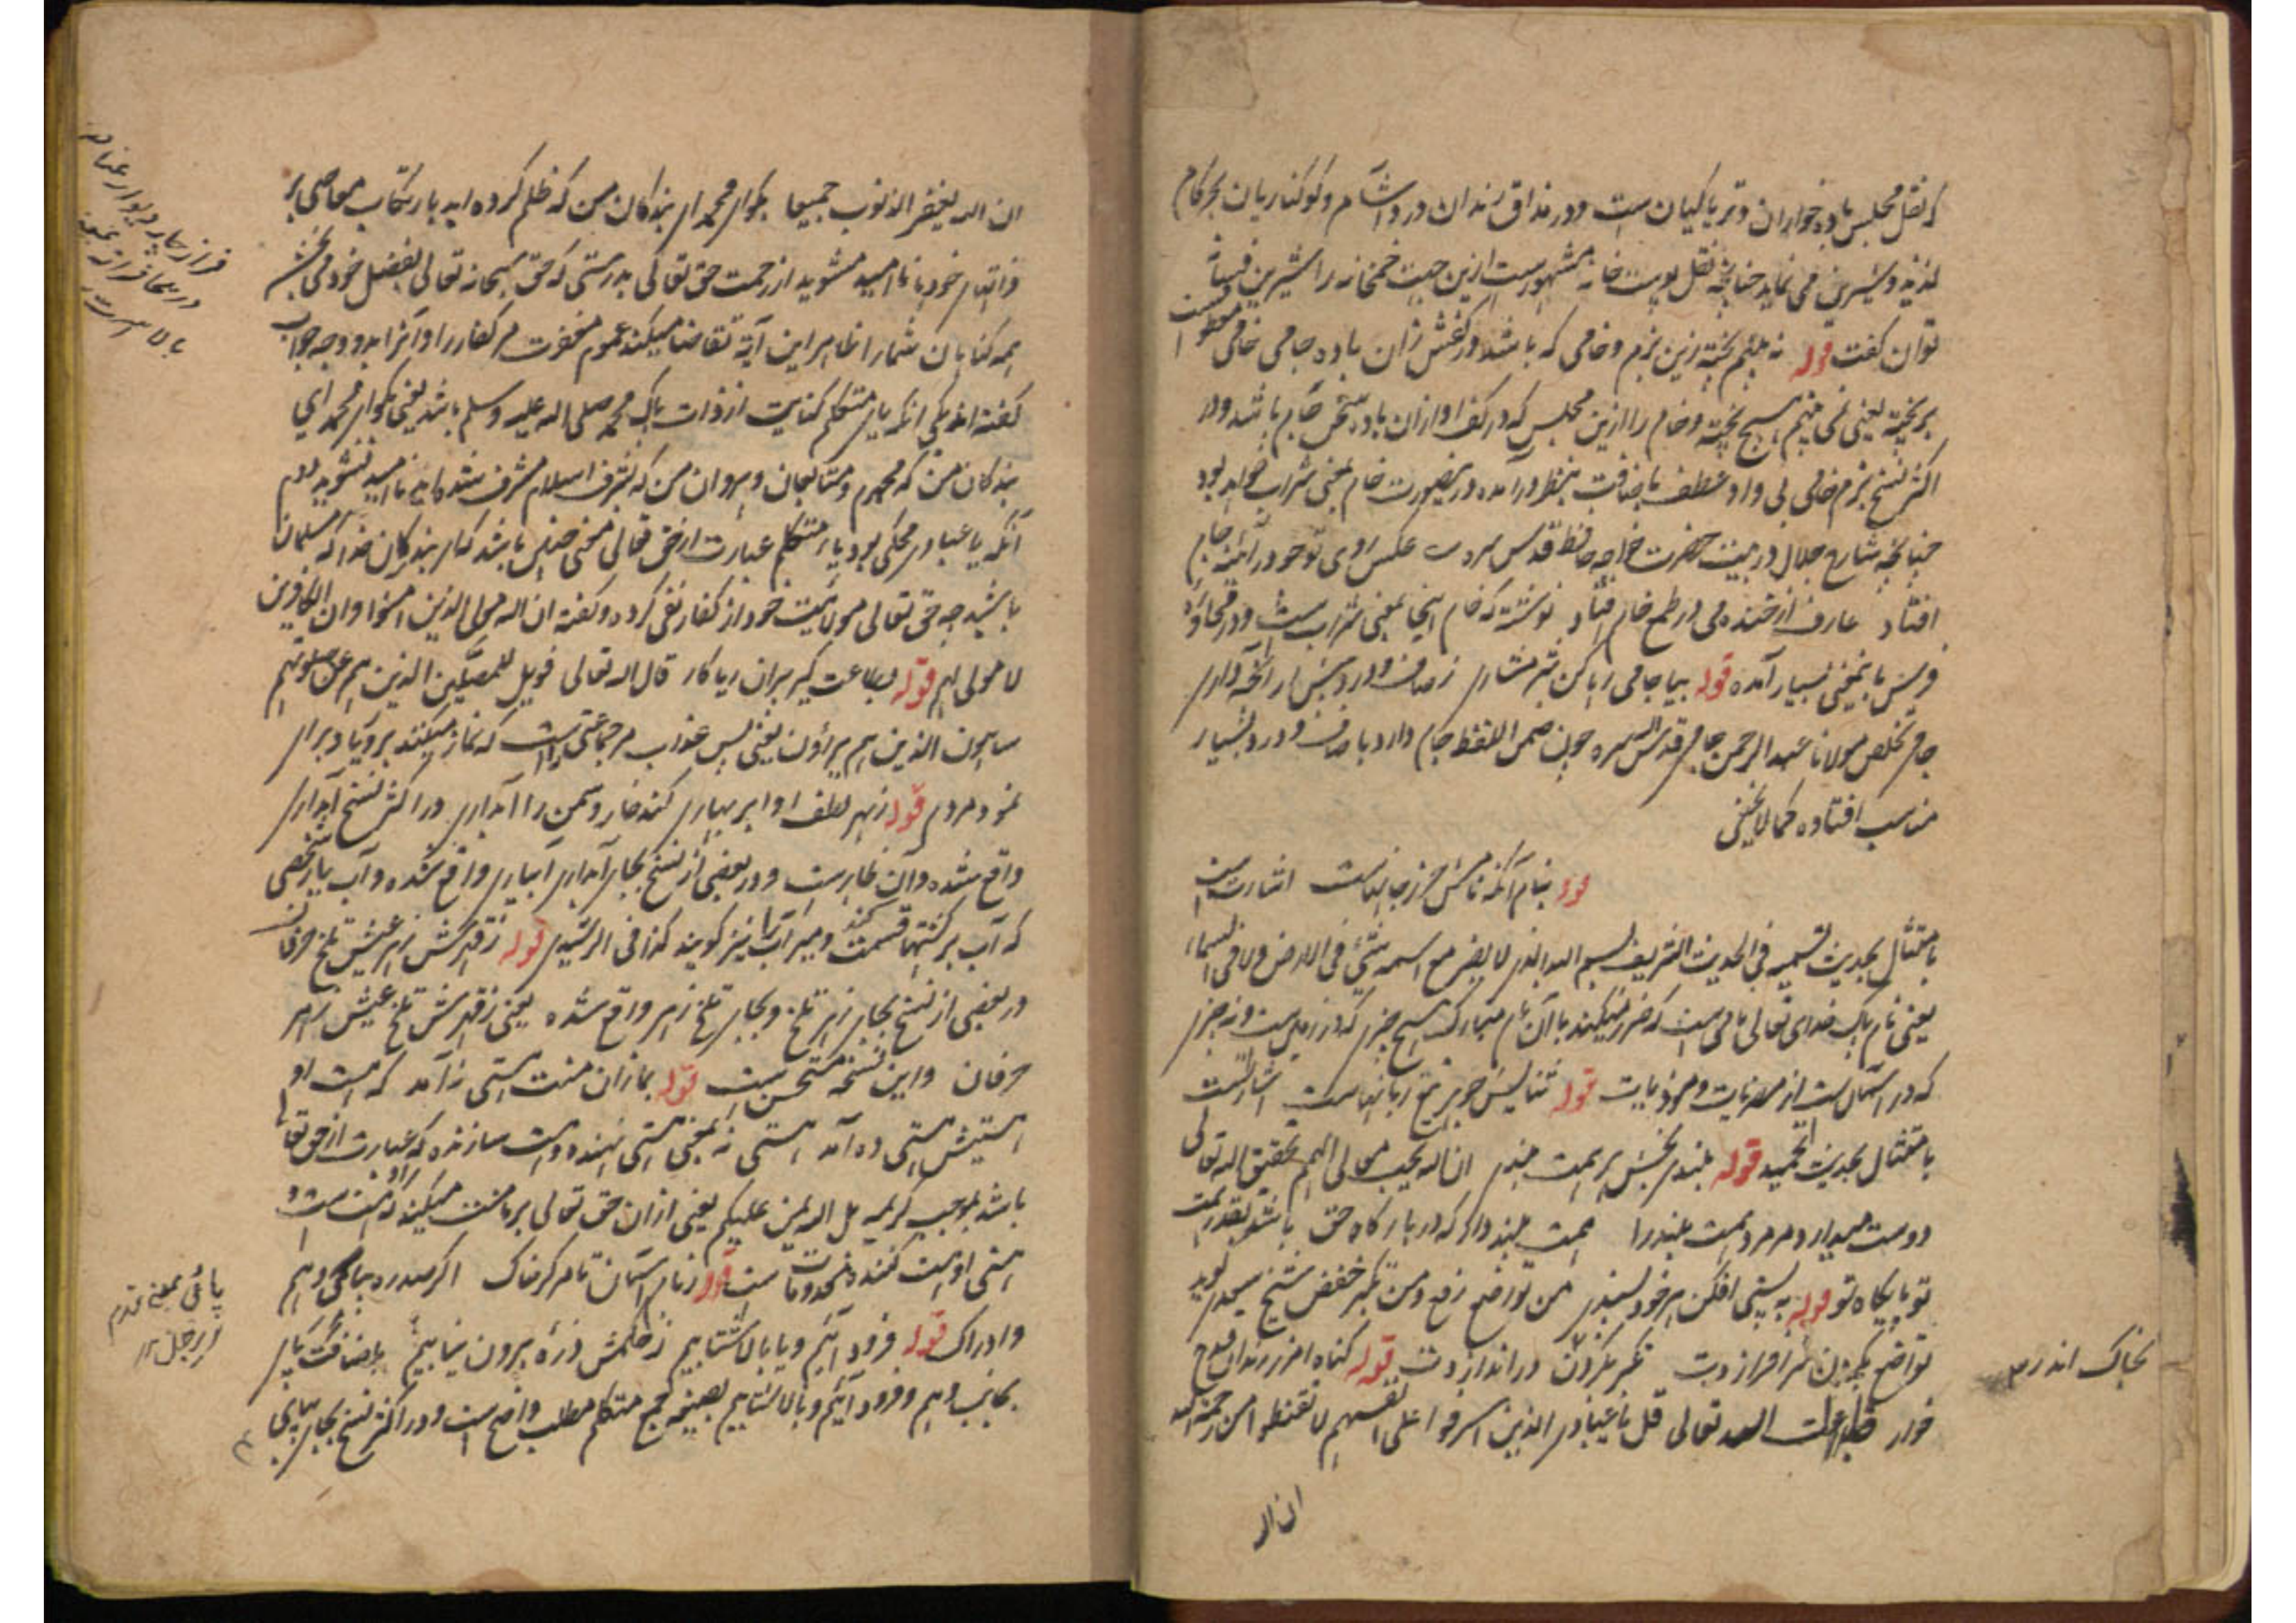 که نقل مجلس باده خواران و تریاکیان است و در مذاق رندان درد آشام و کوکناریان بجر کام
لذیذ و شیرین می نماید چنانچه نقل پوست خانه مشهورست ازین جهت خمخانه را شیرین فسانه
توان گفت قوله نه بینم پخته زین بزم و خامی که باشد در کفش زان باده جامی خامی معطوفست
بر پخته یعنی نمی بینم هیچ پخته و خام را ازین مجلس که در کف او ازان باده سخن جام باشد و در
اکثر نسخ بزم خامی بی واو عطف باضافت بنظر درآمده درینصورت خام بمعنی شراب خواهد بود
چنانچه شارح جلال در بیت حضرت خواجه حافظ قدس سره عکس روی تو چو در آئنه جام
افتاد عارف از خنده می در طمع خام افتاد نوشته که خام اینجا بمعنی شراب است و در محاوره
فرس باینمعنی بسیار آمده قوله بیا جامی رها کن شرمساری ز صاف و درد پیش آر آنچه داری
جامی تخلص مولانا عبد الرحمن جامی قدس سره چون ضمن اللفظ جام دارد با صاف و درد بسیار
مناسب افتاده کما لا یخفی
قوله بنام آنکه نامش حرز جانهاست اشارتست
بامتثال بحدیث تسمیه فی الحدیث الشریف بسم الله الذی لا یضر مع اسمه شیء فی الارض ولا فی السماء
یعنی نام پاک خدای تعالی نامی است که ضرر نمیکند با آن نام مبارک هیچ چیزی که در زمین ست و نه چیزی
که در آسمان ست از مضرات و موذیات قوله ثنایش جوهر تیغ زبانهاست اشارتست
بامتثال بحدیث تحمید قوله بلندی بخش هر همت بلندی ان الله یحب معالی الهمم بتحقیق الله تعالی
دوست میدارد مر مرد همت بلند را همت بلند دار که در بارگاه حق باشد بقدر همت
تو پایگاه تو قوله به پستی افکن هر خود پسندی من تواضع رفع و من تکبر خفض شیخ سعدی گوید
تواضع بگردون سر افرازدت تکبر نگردون در اندازدت قوله گناه آمرز رندان قدح
خوار قال الله تعالی قل یا عبادی الذین اسرفوا علی انفسهم لا تقنطوا من رحمة الله
ان الله
بخاک اندر
ان الله یغفر الذنوب جمیعا بگو ای محمد ای بندگان من که ظلم کرده اید بارتکاب معاصی بر
ذاتهای خود نا امید مشوید از رحمت حق تعالی بدرستی که حق سبحانه تعالی بفضل خود می بخشد
همه گناهان شما را ظاهر این آیة تقاضا میکند عموم مغفرت مر کفار را و آنرا بدو وجه جواب
گفته اند یکی آنکه یای متکلم کنایت از ذات پاک محمد صلی الله علیه وسلم باشد یعنی بگو ای محمد ای
بندگان من که محمدم و متابعان و پیروان من که بشرف اسلام مشرف شده اید نا امید نشوید دوم
آنکه یا عبادی محکی بود یاء متکلم عبارت از حق تعالی معنی چنین باشد که ای بندگان خدا که مسلمان
باشید چه حق تعالی مولائیت خود از کفار نفی کرده و گفته ان الله مولی الذین امنوا وان الکافرین
لا مولی لهم قوله بطاعت گیر پیران ریاکار قال الله تعالی فویل للمصلین الذین هم عن صلوتهم
ساهون الذین هم یراؤن یعنی پس عذاب مر جماعتی راست که نماز میکنند بریا و برای
نمود مردم قوله ز بهر لطف او ابر بهاری کند خار و سمن را آبداری در اکثر نسخ آبداری
واقع شده و آن ظاهرست و در بعضی از نسخ بجای آبداری آبیاری واقع شده و آب یار شخصی
که آب بر کشتها قسمت کند و میرآب را نیز گویند کذا فی الرشیدی قوله ز قهرش زهر عیش تلخ حرفان
در بعضی از نسخ بجای زهر تلخ و بجای تلخ زهر واقع شده یعنی ز قهرش تلخ عیش زهر
حرفان و این نسخه مستحسن است قوله بما زان منت هستی نه آمد که هست او
هستیش هستی ده آمد هستی نه بمعنی هستی نهنده و هست سازنده که عبارت از حق تعالی
باشد بموجب کریمه بل الله یمن علیکم یعنی ازان حق تعالی بر ما منت میکند که هست ست و
هستی او هست کننده مخدومات ست قوله ز بام آسمان تا مرکز خاک اگر صد ره بپای وهم
و ادراک قوله فرود آئیم و یا بالا شتابیم ز حکمش ذره بیرون نیابیم باضافت پای
بجانب وهم و فرود آئیم و بالا شتابیم بصیغه جمع متکلم مطلب واضح است و در اکثر نسخ بجای بپای
فراز جای دیوار
در اینجا فراز بمعنی
بالا است
پای بمعنی قدم